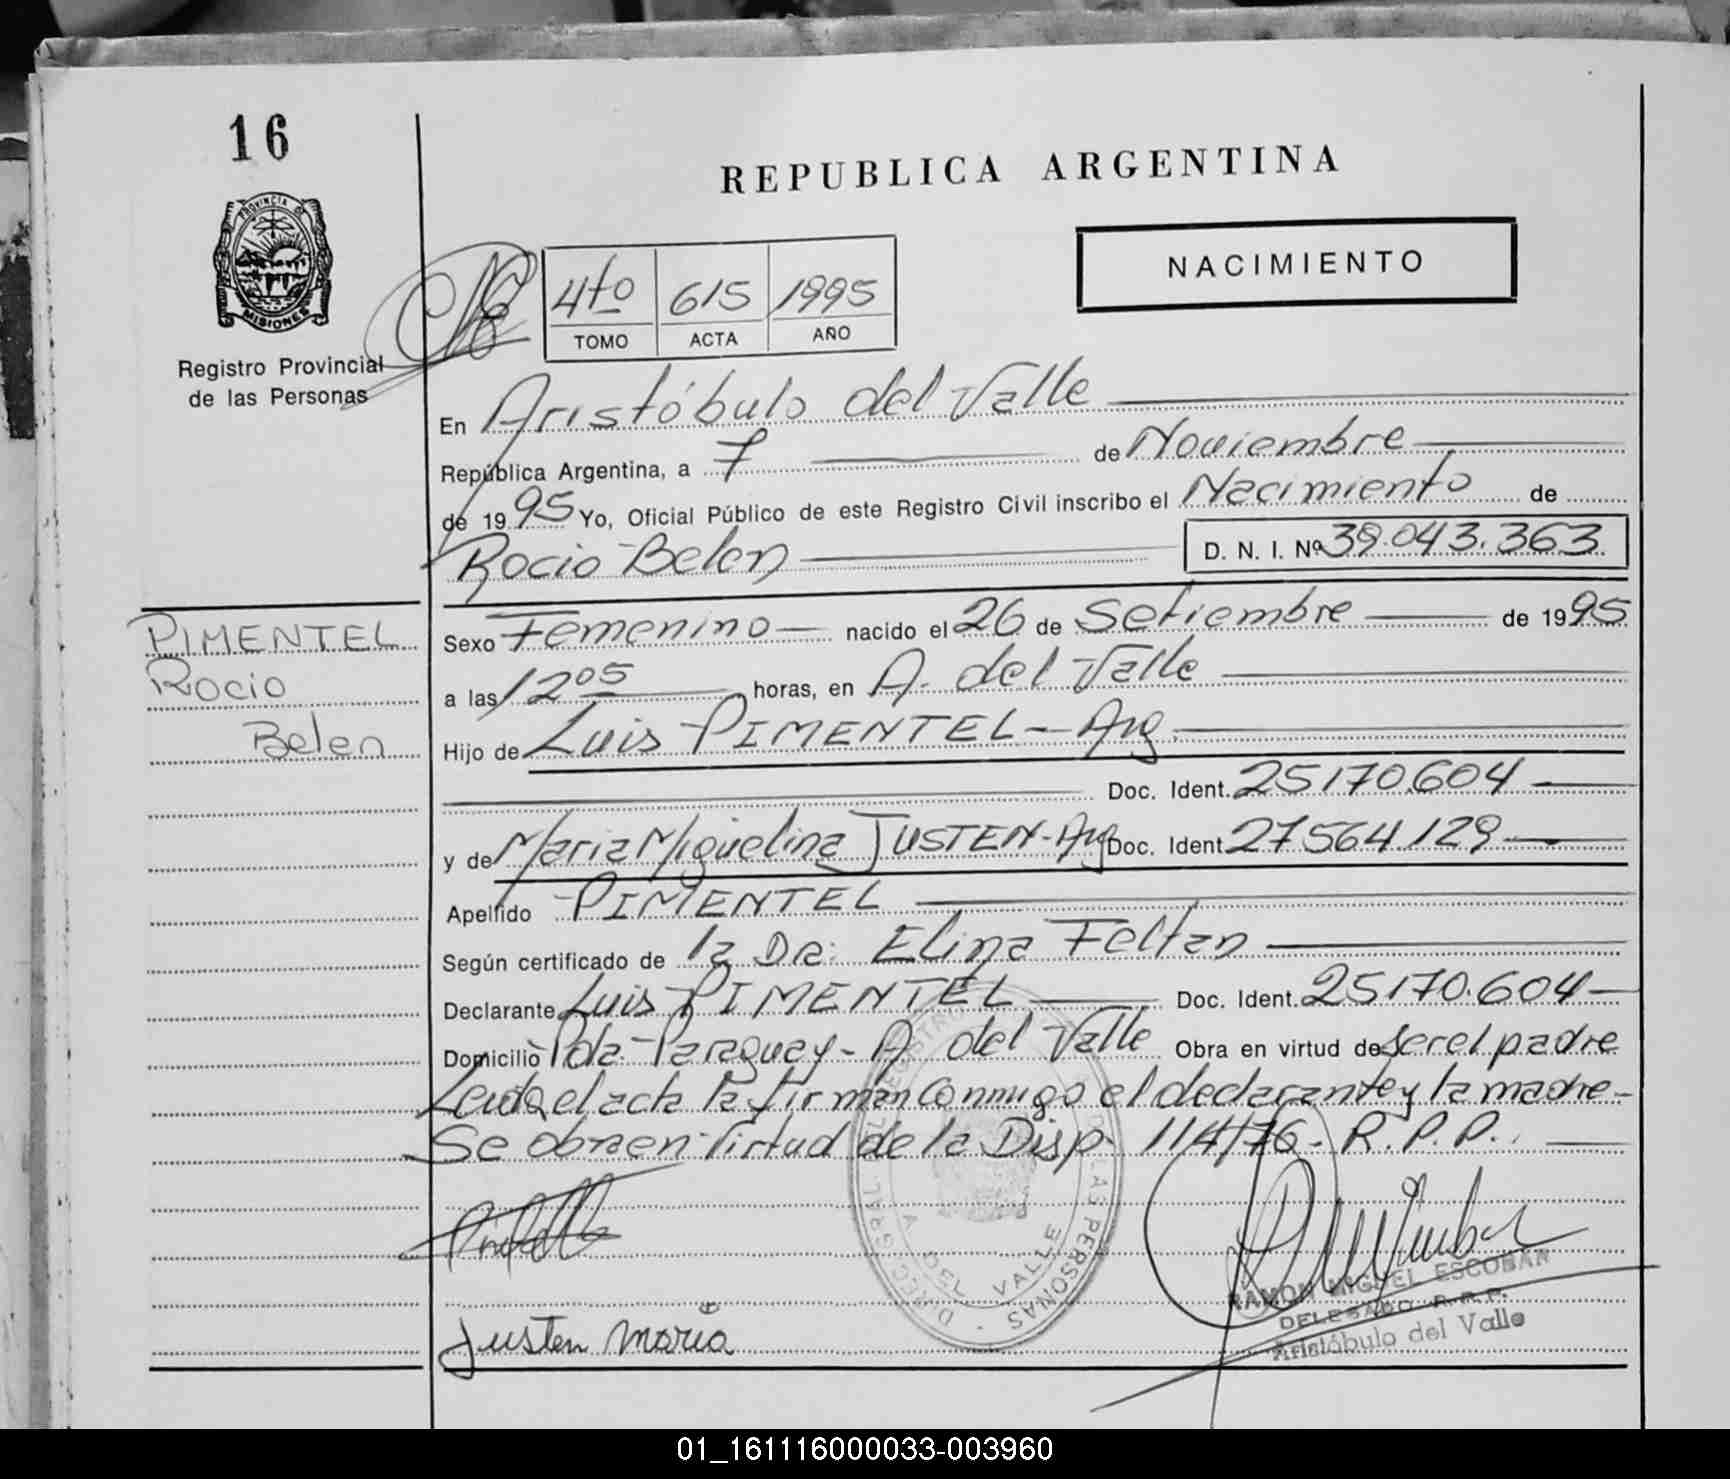 16
REPUBLICA ARGENTINA
NACIMIENTO
PROVINCIA DE
MISIONES
Registro Provincial
de las Personas
4to 615 1995
TOMO ACTA AÑO
En Aristóbulo del Valle
República Argentina, a 7 de Noviembre
de 1995 Yo, Oficial Público de este Registro Civil inscribo el Nacimiento de
Rocio Belen D. N. I. Nº 39.043.363
PIMENTEL
Rocio
Belen
Sexo Femenino nacido el 26 de Setiembre de 1995
a las 12 05 horas, en A. del Valle
Hijo de Luis PIMENTEL - Arg.
Doc. Ident. 25170.604
y de Maria Miguelina JUSTEN - Arg Doc. Ident. 27564.129
Apellido PIMENTEL
Según certificado de la Dra: Elina Feltan
Declarante Luis PIMENTEL Doc. Ident. 25170.604
Domicilio Pda. Paraguay - A. del Valle Obra en virtud de ser el padre
Leida el acta la firman conmigo el declarante y la madre -
Se obra en Virtud de la Disp. 114/76 - R.P.P.
DEL VALLE
LAS PERSONAS
RAMON MIGUEL ESCOBAR
DELEGADO R.R.P.
Aristóbulo del Valle
Justen Maria
01_161116000033-003960